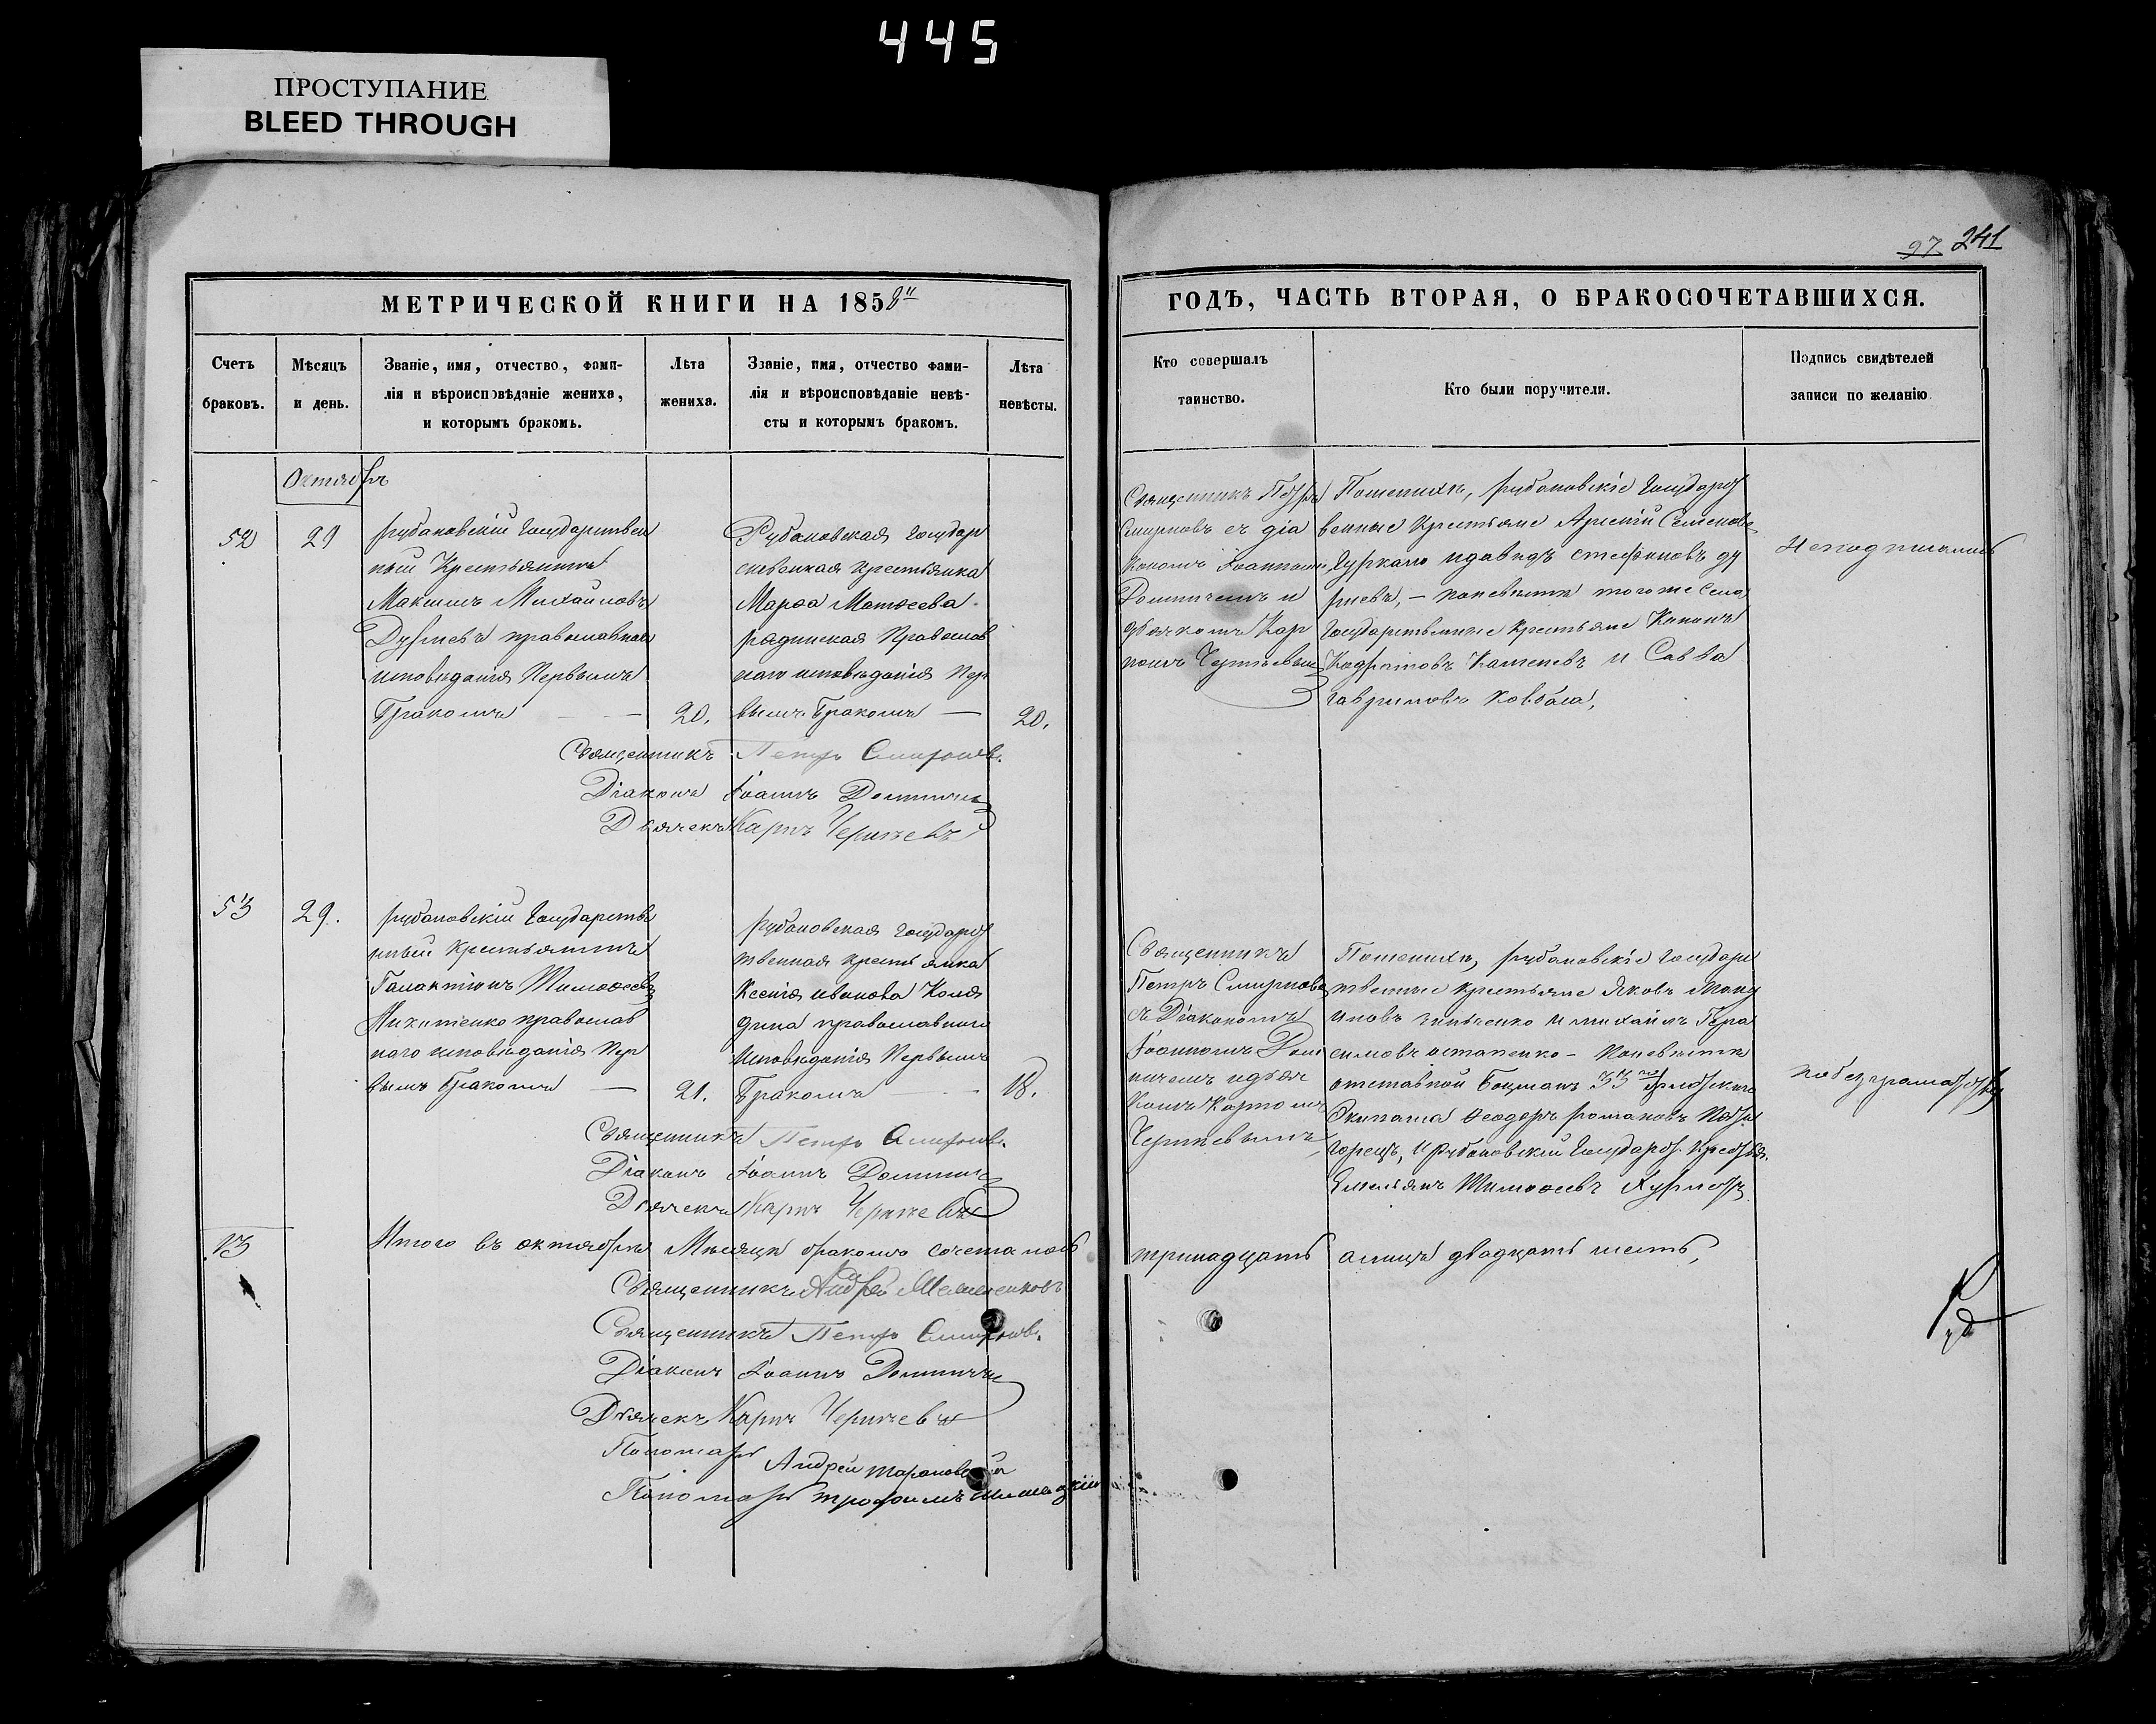 445
ПРОСТУПАНИЕ
BLEED THROUGH
97 241
МЕТРИЧЕСКОЙ КНИГИ НА 1858й
ГОДЪ, ЧАСТЬ ВТОРАЯ, О БРАКОСОЧЕТАВШИХСЯ.
Счетъ
браковъ.
Мѣсяцъ
и день.
Званіе, имя, отчество, фами-
лія и вѣроисповѣданіе жениха,
и которымъ бракомъ.
Лѣта
жениха.
Званіе, имя, отчество фами-
лія и вѣроисповѣданіе невѣ-
сты и которымъ бракомъ.
Лѣта
невѣсты.
Кто совершалъ
таинство.
Кто были поручители.
Подпись свидѣтелей
записи по желанію
Октябрь
52
29
рубановскій Государствен
ный Крестьянинъ
Максимъ Михайловъ
православнаго
исповѣданія Первымъ
Бракомъ —
20.
Рубановская Государ
ственная крестьянка
Марѳа Матѳеева
Православ
наго исповѣданія Пер
вымъ Бракомъ —
20.
Священникъ Петръ
Смирновъ съ діа
кономъ Іоанномъ
и
дьячкомъ Кар
помъ
По женихѣ, рубановскіе Государст
венные Крестьяне Семеновъ
и давидъ стефановъ ду
— по невѣстѣ того же села
Государственные крестьяне
и Савва
гавриловъ Ковбаса,
Неподписались
Священникъ Петръ Смирновъ.
Діаконъ Іоаннъ
Дьячекъ Карпъ
53
29.
рубановскій Государстве
нный крестьянинъ
Галактіонъ Тимоѳеевъ
Никитенко православ
наго исповѣданія Пер
вымъ Бракомъ —
21.
рубановская Государст
твенная крестьянка
Ксенія иванова Коля
дина православнаго
Исповѣданія Первымъ
Бракомъ —
18.
Священникъ
Петръ Смирновъ
съ Діакономъ
Іоанномъ
и дьяч
комъ Карпомъ
По женихѣ, рубановскіе Государс
твенные крестьяне Яковъ
и михаилъ Гера
симовъ остапенко - По невѣстѣ
отставной Боцманъ 33го флотскаго
Экипажа Ѳеодоръ
и рубановскій Государст. Крестья.
Емельянъ Тимоѳеевъ
Священникъ Петръ Смирновъ.
Діаконъ Іоаннъ
Дьячекъ Карпъ
13
Итого въ октябрѣ Мѣсяцѣ бракомъ сочеталось
тринадцать а лицъ двадцать шесть,
Священникъ Андрей
Священникъ Петръ Смирновъ.
Діаконъ Іоаннъ
Дьячекъ Карпъ
Пономарь Андрей
Пономарь трофимъ